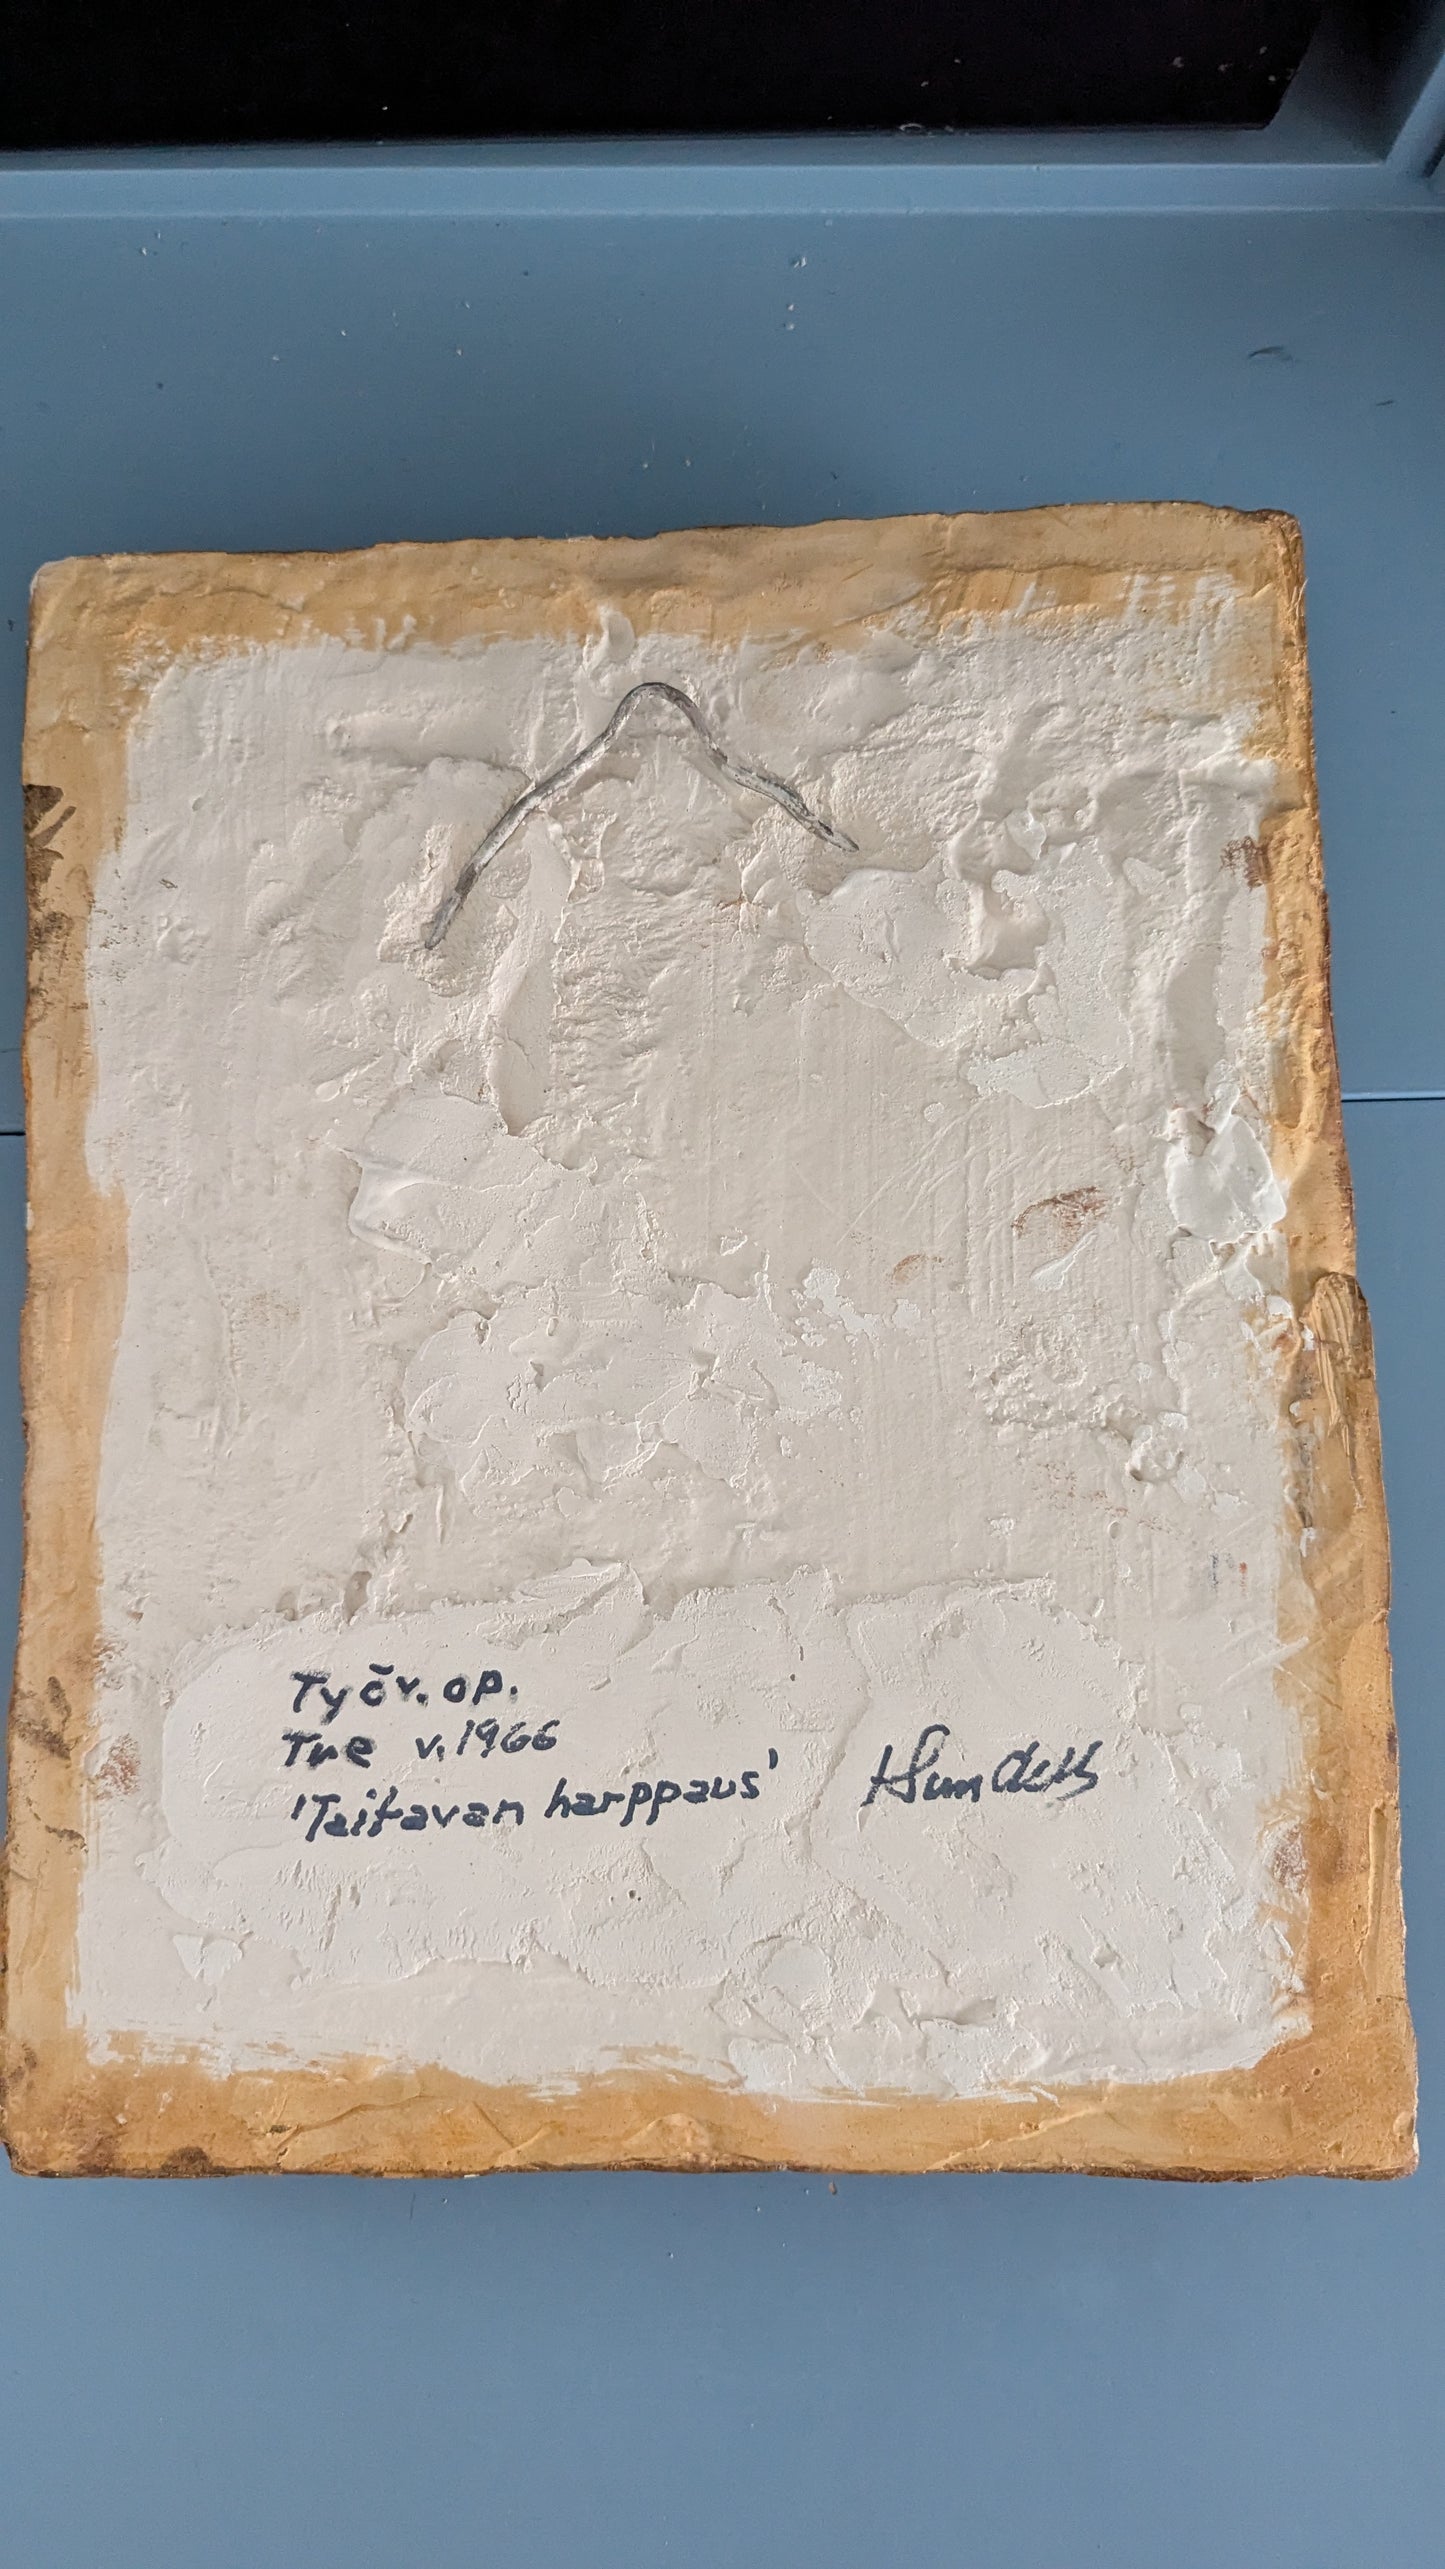 Työv. op.
Tre v. 1966
'Taitavan harppaus'
HSundell